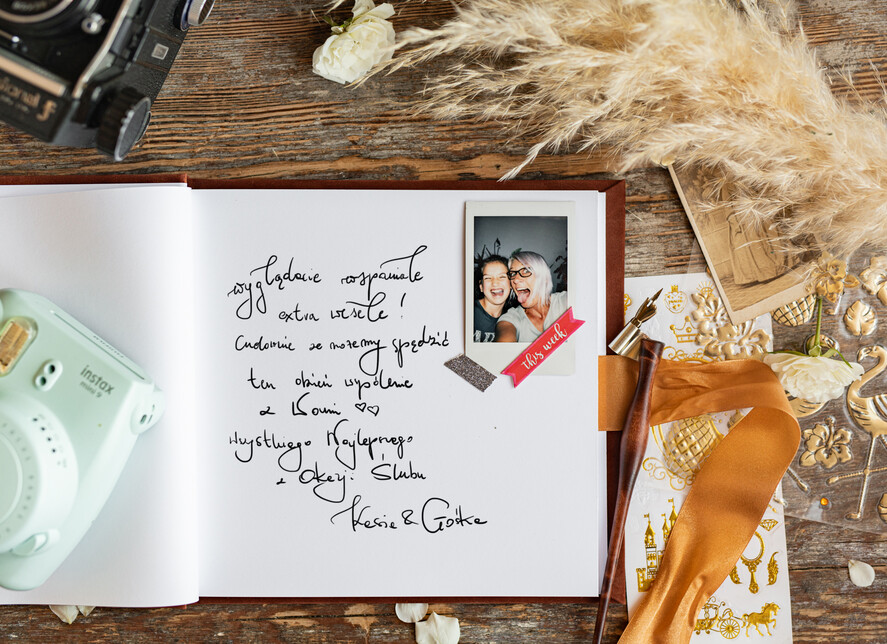 wyglądacie wspaniale
extra wesele !
Cudownie że możemy spędzić
ten dzień wspólnie
z Wami ♡♡
Wszystkiego Najlepszego
z Okazji Ślubu
Kasia & Gośka
this week
instax
mini 9